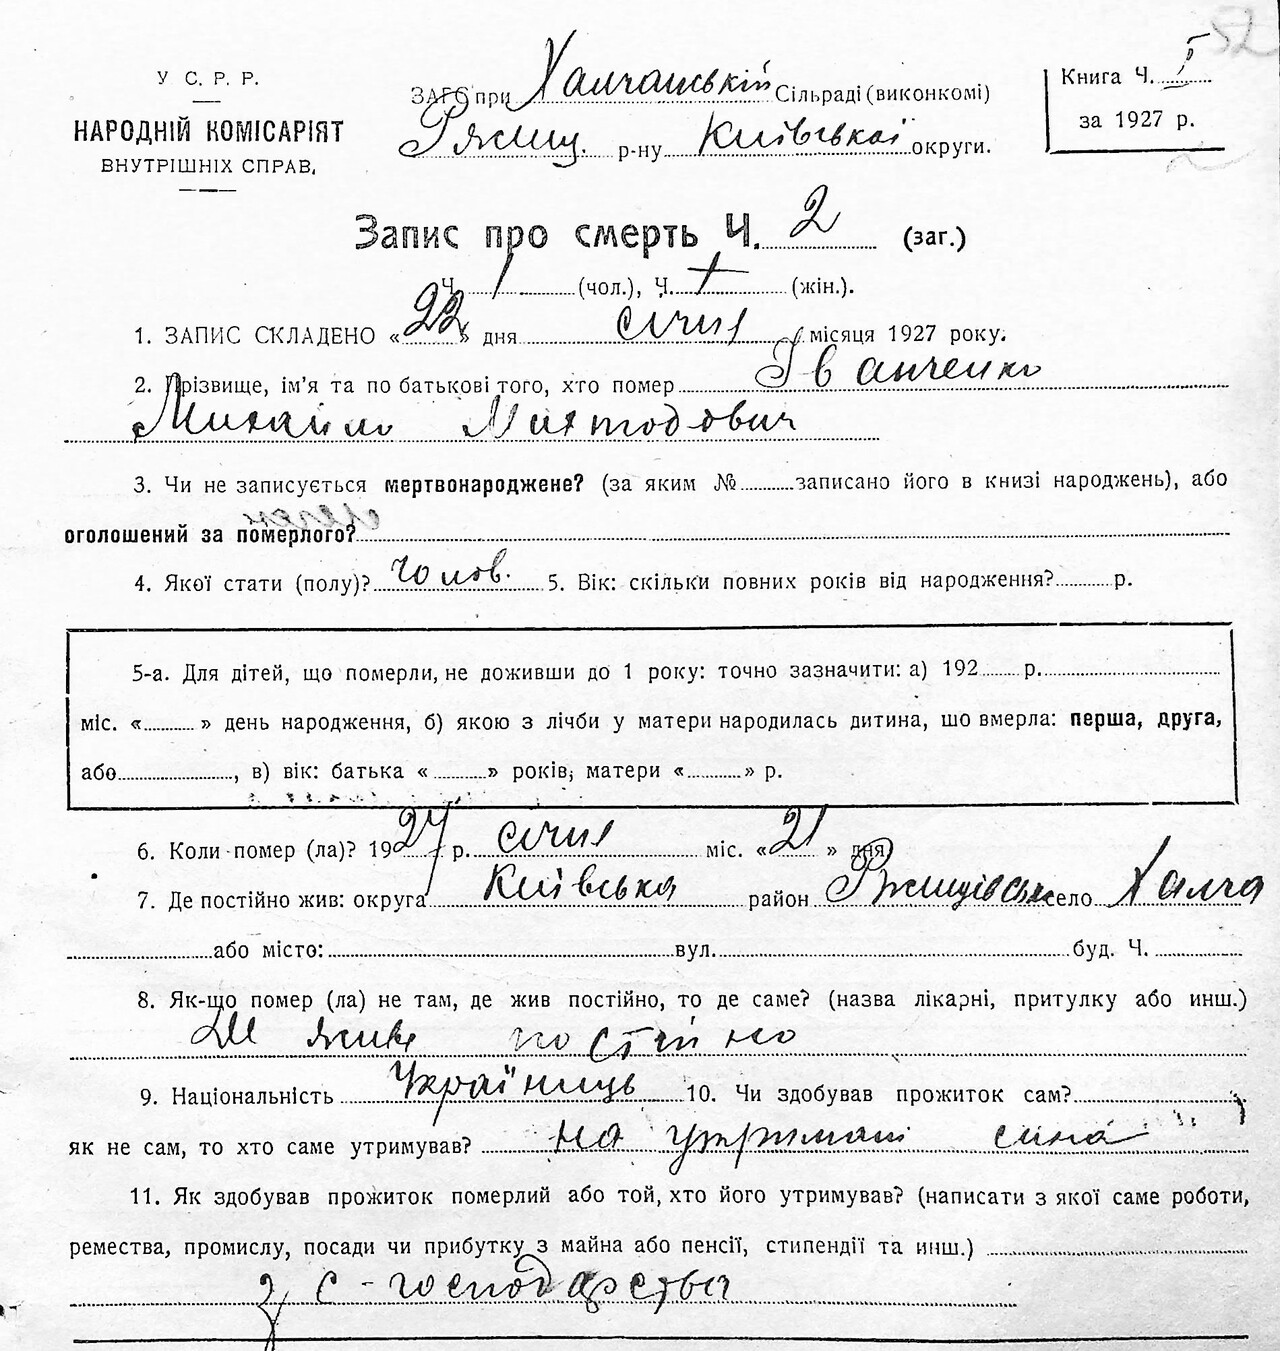 52
У С. Р. Р.
НАРОДНІЙ КОМІСАРІЯТ
ВНУТРІШНІХ СПРАВ,
ЗАГС при Халчанській Сільраді (виконкомі)
Ржищ. р-ну Київської округи.
Книга Ч. I
за 1927 р.
Запис про смерть Ч. 2 (заг.)
Ч. 1 (чол.), Ч. (жін.).
1. ЗАПИС СКЛАДЕНО «22» дня січня місяця 1927 року.
2. Прізвище, ім'я та по батькові того, хто помер Іванченко
Михайло
3. Чи не записується мертвонароджене? (за яким № записано його в книзі народжень), або
оголошений за померлого?
4. Якої стати (полу)? чолов. 5. Вік: скільки повних років від народження? р.
5-а. Для дітей, що померли, не доживши до 1 року: точно зазначити: а) 192 р.
міс. « » день народження, б) якою з лічби у матери народилась дитина, що вмерла: перша, друга,
або , в) вік: батька « » років; матери « » р.
6. Коли помер (ла)? 1927 р. січня міс. «21» дня
7. Де постійно жив: округа Київська район Ржищівськ село Халча
або місто: вул. буд. Ч.
8. Як-що помер (ла) не там, де жив постійно, то де саме? (назва лікарні, притулку або инш.)
Де живе постійно
9. Національність Українець 10. Чи здобував прожиток сам?
як не сам, то хто саме утримував? на утримані сина
11. Як здобував прожиток померлий або той, хто його утримував? (написати з якої саме роботи,
ремества, промислу, посади чи прибутку з майна або пенсії, стипендії та инш.)
з с-господарства